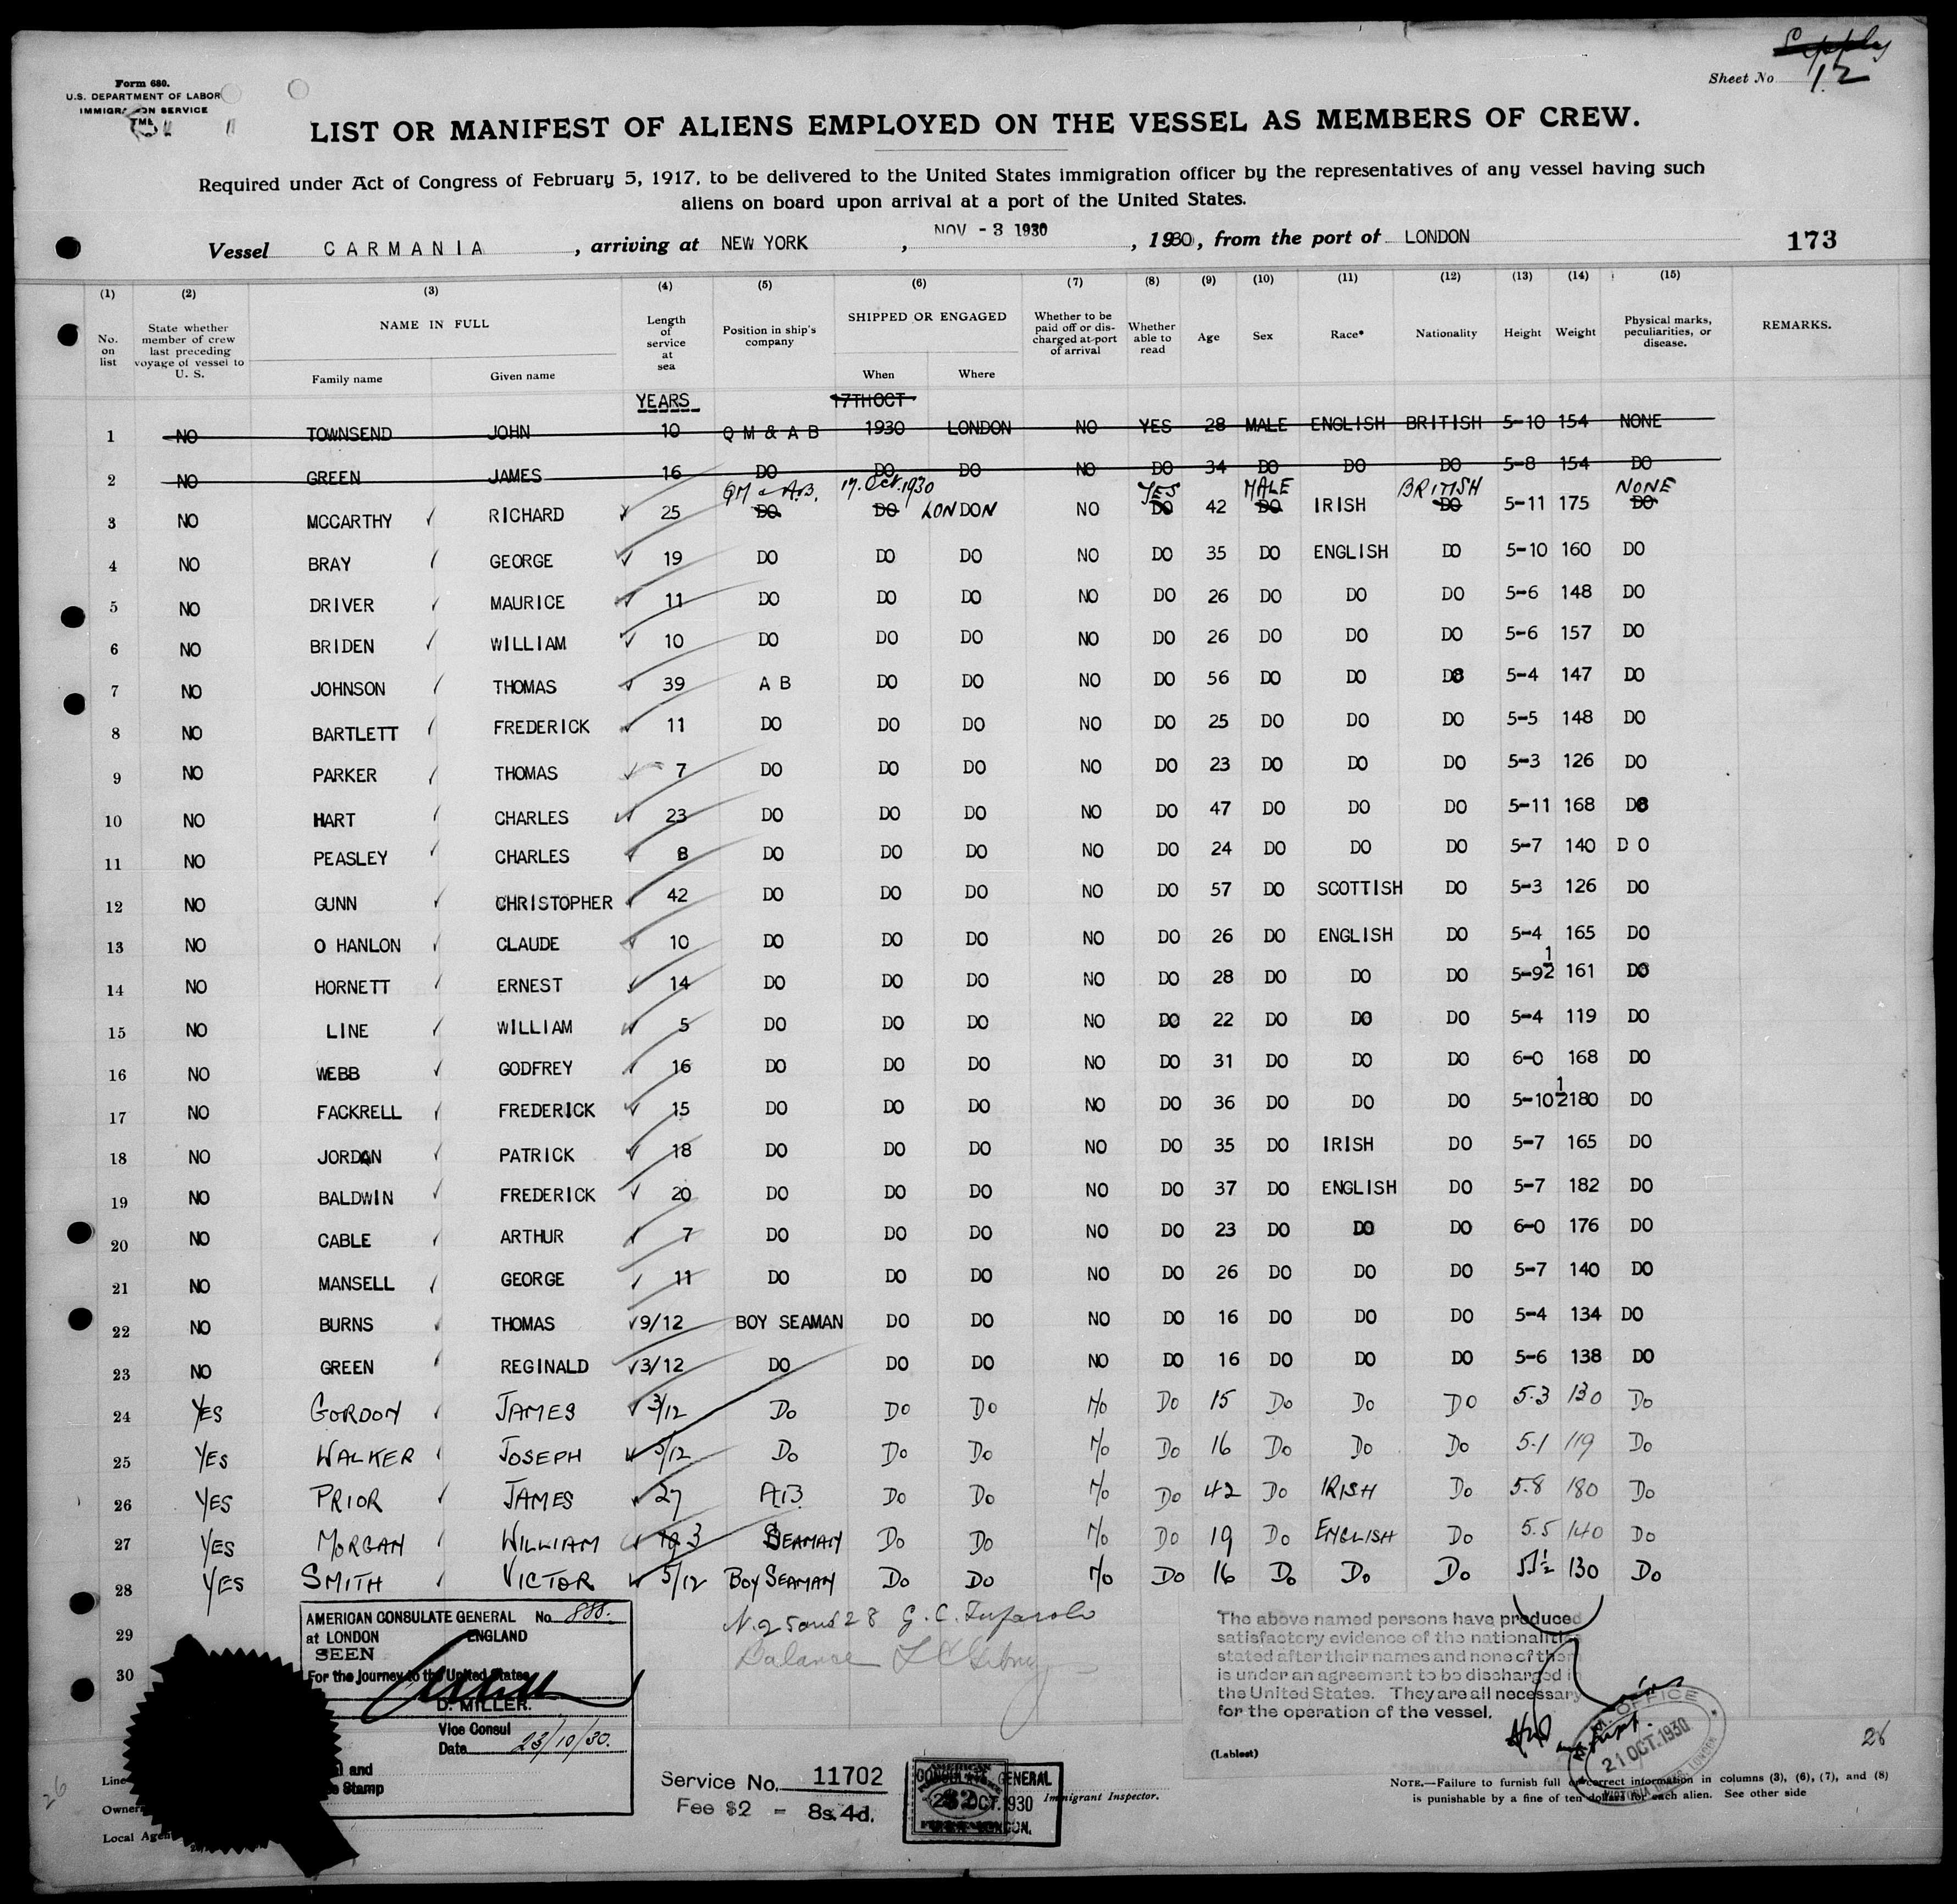 Supply
Form 680.
U.S. DEPARTMENT OF LABOR
IMMIGRATION SERVICE
Sheet No. 12
LIST OR MANIFEST OF ALIENS EMPLOYED ON THE VESSEL AS MEMBERS OF CREW.
Required under Act of Congress of February 5, 1917, to be delivered to the United States immigration officer by the representatives of any vessel having such
aliens on board upon arrival at a port of the United States.
Vessel CARMANIA, arriving at NEW YORK, NOV - 3 1930, 1930, from the port of LONDON 173
(1) (2) (3) (4) (5) (6) (7) (8) (9) (10) (11) (12) (13) (14) (15)
No. on list State whether member of crew last preceding voyage of vessel to U. S. NAME IN FULL Length of service at sea Position in ship's company SHIPPED OR ENGAGED Whether to be paid off or discharged at port of arrival Whether able to read Age Sex Race* Nationality Height Weight Physical marks, peculiarities, or disease. REMARKS.
Family name Given name When Where
YEARS 17TH OCT
1 NO TOWNSEND JOHN 10 Q M & A B 1930 LONDON NO YES 28 MALE ENGLISH BRITISH 5-10 154 NONE
2 NO GREEN JAMES 16 DO DO DO NO DO 34 DO DO DO 5-8 154 DO
QM & A.B. 17. Oct. 1930 YES MALE BRITISH NONE
3 NO MCCARTHY RICHARD 25 DO DO LONDON NO DO 42 DO IRISH DO 5-11 175 DO
4 NO BRAY GEORGE 19 DO DO DO NO DO 35 DO ENGLISH DO 5-10 160 DO
5 NO DRIVER MAURICE 11 DO DO DO NO DO 26 DO DO DO 5-6 148 DO
6 NO BRIDEN WILLIAM 10 DO DO DO NO DO 26 DO DO DO 5-6 157 DO
7 NO JOHNSON THOMAS 39 A B DO DO NO DO 56 DO DO DO 5-4 147 DO
8 NO BARTLETT FREDERICK 11 DO DO DO NO DO 25 DO DO DO 5-5 148 DO
9 NO PARKER THOMAS 7 DO DO DO NO DO 23 DO DO DO 5-3 126 DO
10 NO HART CHARLES 23 DO DO DO NO DO 47 DO DO DO 5-11 168 DO
11 NO PEASLEY CHARLES 8 DO DO DO NO DO 24 DO DO DO 5-7 140 D O
12 NO GUNN CHRISTOPHER 42 DO DO DO NO DO 57 DO SCOTTISH DO 5-3 126 DO
13 NO O HANLON CLAUDE 10 DO DO DO NO DO 26 DO ENGLISH DO 5-4 165 DO
14 NO HORNETT ERNEST 14 DO DO DO NO DO 28 DO DO DO 5-9½ 161 DO
15 NO LINE WILLIAM 5 DO DO DO NO DO 22 DO DO DO 5-4 119 DO
16 NO WEBB GODFREY 16 DO DO DO NO DO 31 DO DO DO 6-0 168 DO
17 NO FACKRELL FREDERICK 15 DO DO DO NO DO 36 DO DO DO 5-10½ 180 DO
18 NO JORDAN PATRICK 18 DO DO DO NO DO 35 DO IRISH DO 5-7 165 DO
19 NO BALDWIN FREDERICK 20 DO DO DO NO DO 37 DO ENGLISH DO 5-7 182 DO
20 NO CABLE ARTHUR 7 DO DO DO NO DO 23 DO DO DO 6-0 176 DO
21 NO MANSELL GEORGE 11 DO DO DO NO DO 26 DO DO DO 5-7 140 DO
22 NO BURNS THOMAS 9/12 BOY SEAMAN DO DO NO DO 16 DO DO DO 5-4 134 DO
23 NO GREEN REGINALD 3/12 DO DO DO NO DO 16 DO DO DO 5-6 138 DO
24 YES GORDON JAMES 3/12 Do Do Do No Do 15 Do Do Do 5.3 130 Do
25 YES WALKER JOSEPH 5/12 Do Do Do No Do 16 Do Do Do 5.1 119 Do
26 YES PRIOR JAMES 27 AB Do Do No Do 42 Do IRISH Do 5.8 180 Do
27 YES MORGAN WILLIAM 3 SEAMAN Do Do No Do 19 Do ENGLISH Do 5.5 140 Do
28 YES SMITH VICTOR 5/12 BOY SEAMAN Do Do No Do 16 Do Do Do 130 Do
29
30
AMERICAN CONSULATE GENERAL No. 888.
at LONDON ENGLAND
SEEN
For the Journey to the United States
D. MILLER.
Vice Consul
Date 23/10/30.
and
Stamp
N. 25 and 28 G. C.
Balance
The above named persons have produced
satisfactory evidence of the nationalities
stated after their names and none of them
is under an agreement to be discharged in
the United States. They are all necessary
for the operation of the vessel.
(Lablest)
M. OFFICE
21 OCT. 1930
LONDON
26
Line
Owners
Local Agen
26
Service No. 11702
Fee $2 = 8s. 4d.
AMERICAN
CONSULATE GENERAL
$2
OCT. 1930
LONDON.
Immigrant Inspector.
NOTE.—Failure to furnish full or correct information in columns (3), (6), (7), and (8)
is punishable by a fine of ten dollars for each alien. See other side